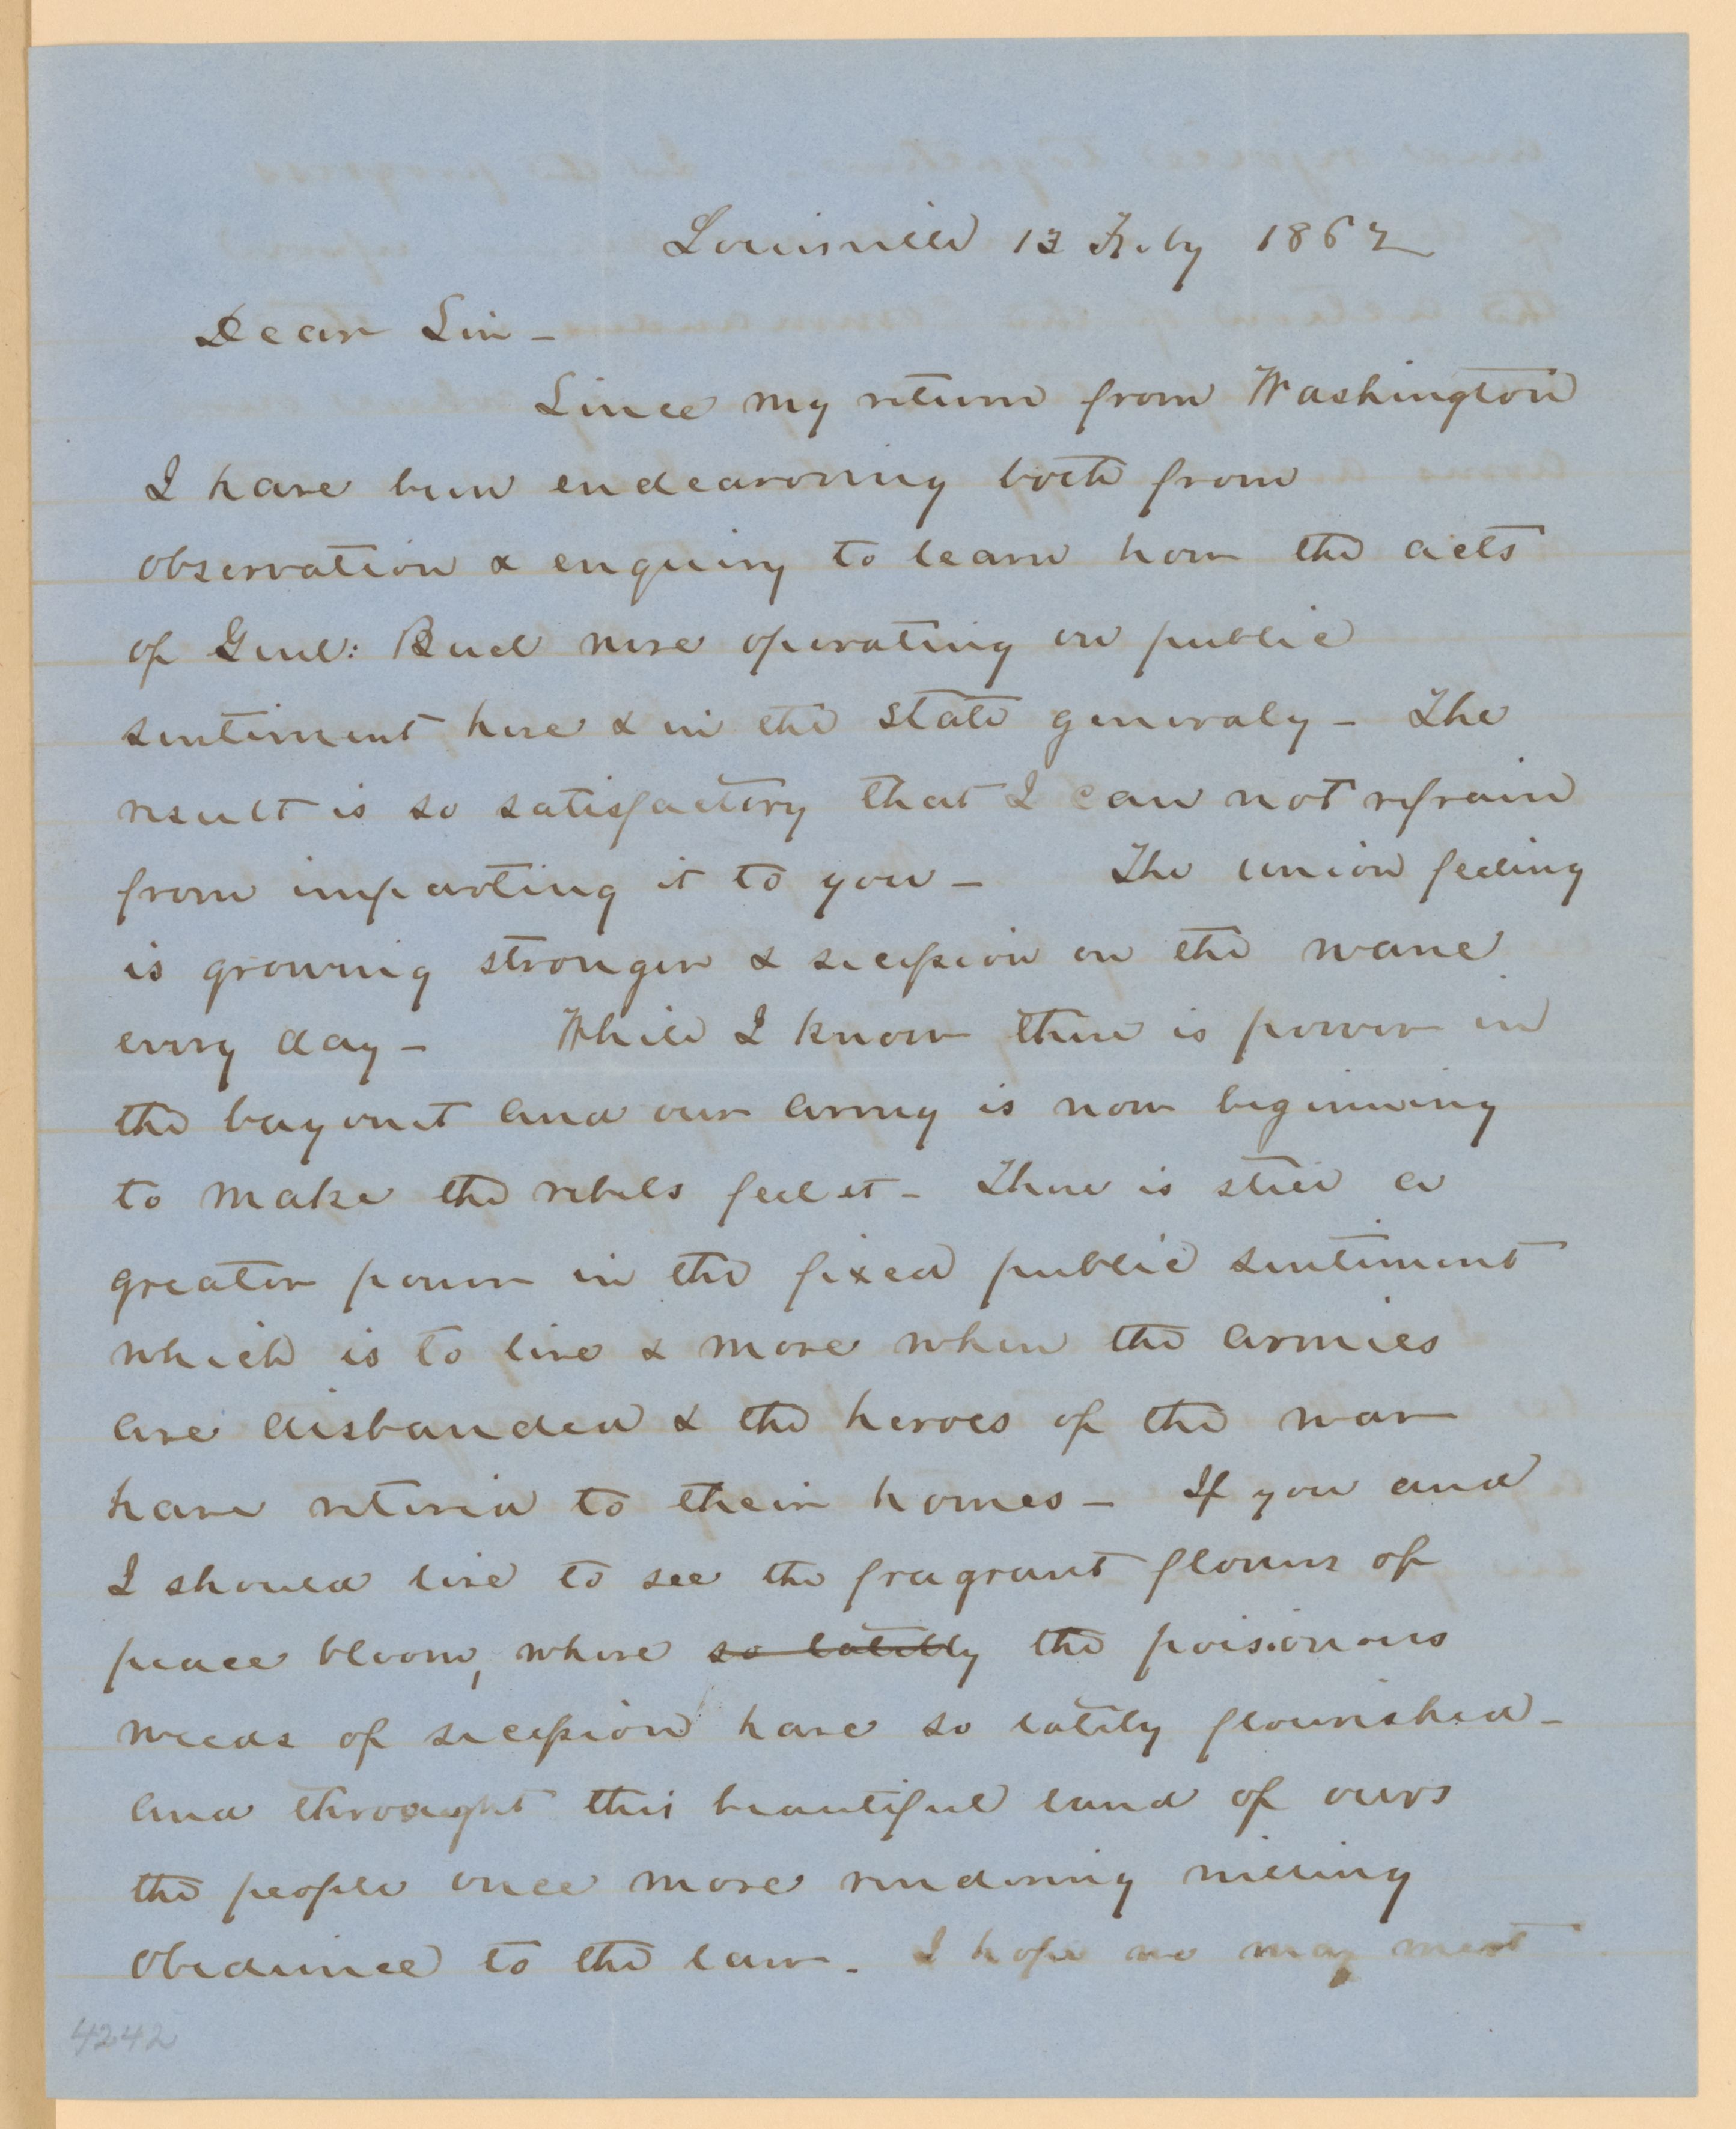 Louisville 13 Feby 1862
Dear Sir –
Since my return from Washington
I have been endeavoring both from
observation & enquiry to learn how the acts
of Genl: Buel were operating on public
sentiment here & in the state generaly – The
result is so satisfactory that I can not refrain
from imparting it to you – The union feeling
is growing stronger & secession on the wane
every day – While I know there is power in
the bayonet and our army is now beginning
to make the rebels feel it – There is still a
greater power in the fixed public sentiment
which is to live & move when the armies
are disbanded & the heroes of the war
have retired to their homes – If you and
I should live to see the fragrant flowers of
peace bloom, where so latelly the poisionous
weeds of secession have so lately flourished –
and throught this beautiful land of ours
the people once more rendering willing
obedience to the law – I hope we may meet
4242